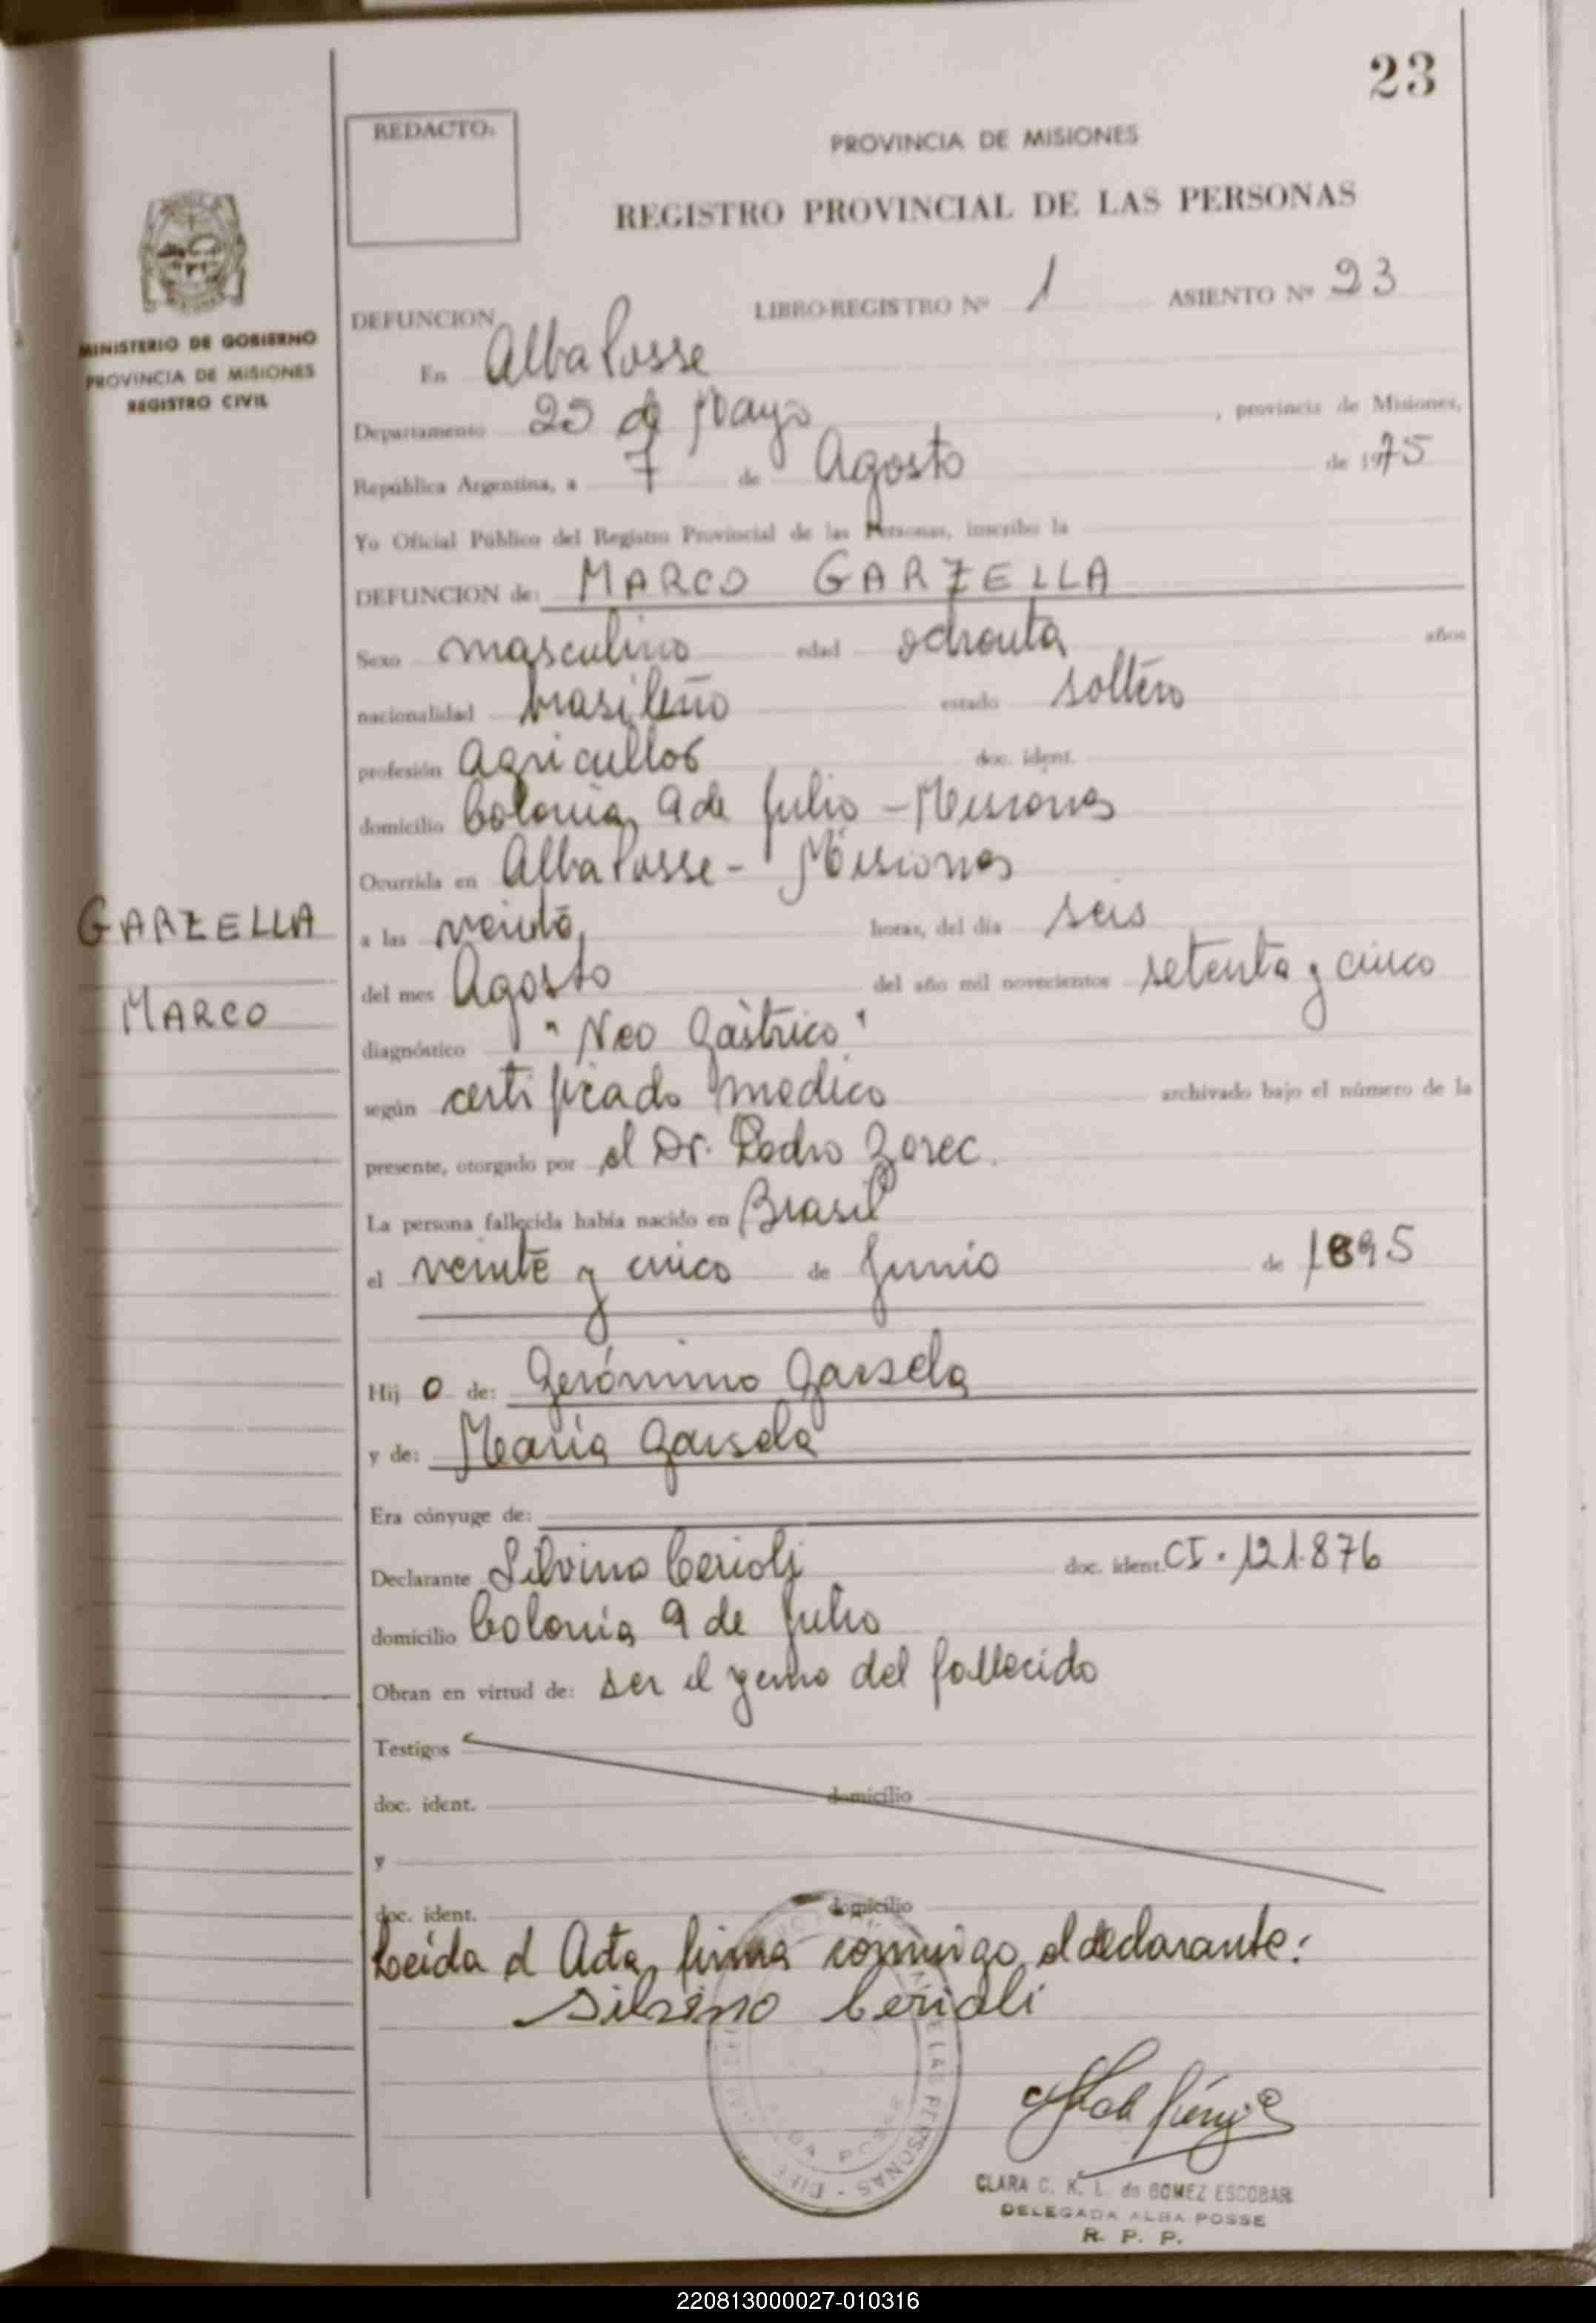 23
REDACTO:
PROVINCIA DE MISIONES
REGISTRO PROVINCIAL DE LAS PERSONAS
MINISTERIO DE GOBIERNO
PROVINCIA DE MISIONES
REGISTRO CIVIL
DEFUNCION LIBRO-REGISTRO Nº 1 ASIENTO Nº 23
En Alba Posse
Departamento 25 de Mayo , provincia de Misiones,
República Argentina, a 7 de Agosto de 1975
Yo Oficial Público del Registro Provincial de las Personas, inscribo la
DEFUNCION de: MARCO GARZELLA
Sexo masculino edad ochenta años
nacionalidad brasileño estado soltero
profesión Agricultor doc. ident.
domicilio Colonia 9 de Julio - Misiones
Ocurrida en Alba Posse - Misiones
GARZELLA
MARCO
a las veinte horas, del día seis
del mes Agosto del año mil novecientos setenta y cinco
diagnóstico "Neo Gástrico"
según certificado medico archivado bajo el número de la
presente, otorgado por el Dr. Pedro Zorec.
La persona fallecida había nacido en Brasil
el veinte y cinco de Junio de 1895
Hij o de: Gerónimo Garsela
y de: María Garsela
Era cónyuge de:
Declarante Silvino Cerioli doc. ident. CI. 121.876
domicilio Colonia 9 de Julio
Obran en virtud de: ser el yerno del fallecido
Testigos
doc. ident. domicilio
y
doc. ident. domicilio
Leída el Acta, firma conmigo el declarante:
Silvino Cerioli
CLARA C. K. L. de GOMEZ ESCOBAR
DELEGADA ALBA POSSE
R. P. P.
220813000027-010316